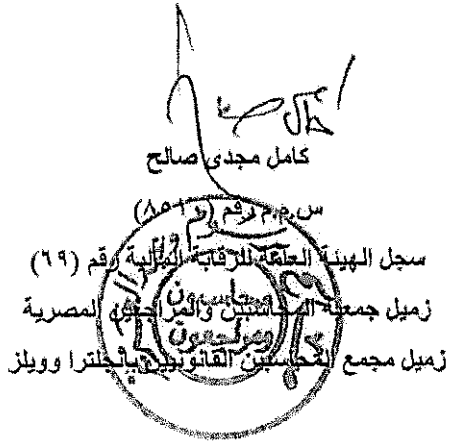 كامل مجدى صالح
س.م.م رقم (٨٥١٠)
سجل الهيئة العامة للرقابة المالية رقم (٦٩)
زميل جمعية المحاسبين والمراجعين المصرية
زميل مجمع المحاسبين القانونيين بإنجلترا وويلز
محاسبون
ومراجعون